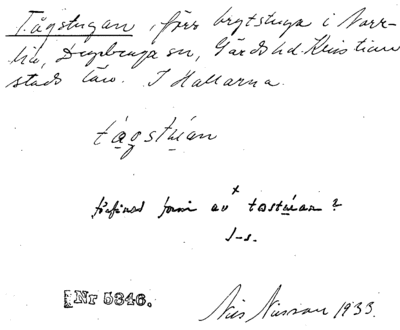 Tågstugan, förr brytstuga i Norr-
lia, Degeberga sn, Gärds hd. Kristian
stads län. I Hallarna.
tågstúan
förfinad form av tastúan?
J-s.
Nr 5346.
Nils Nilsson 1933.